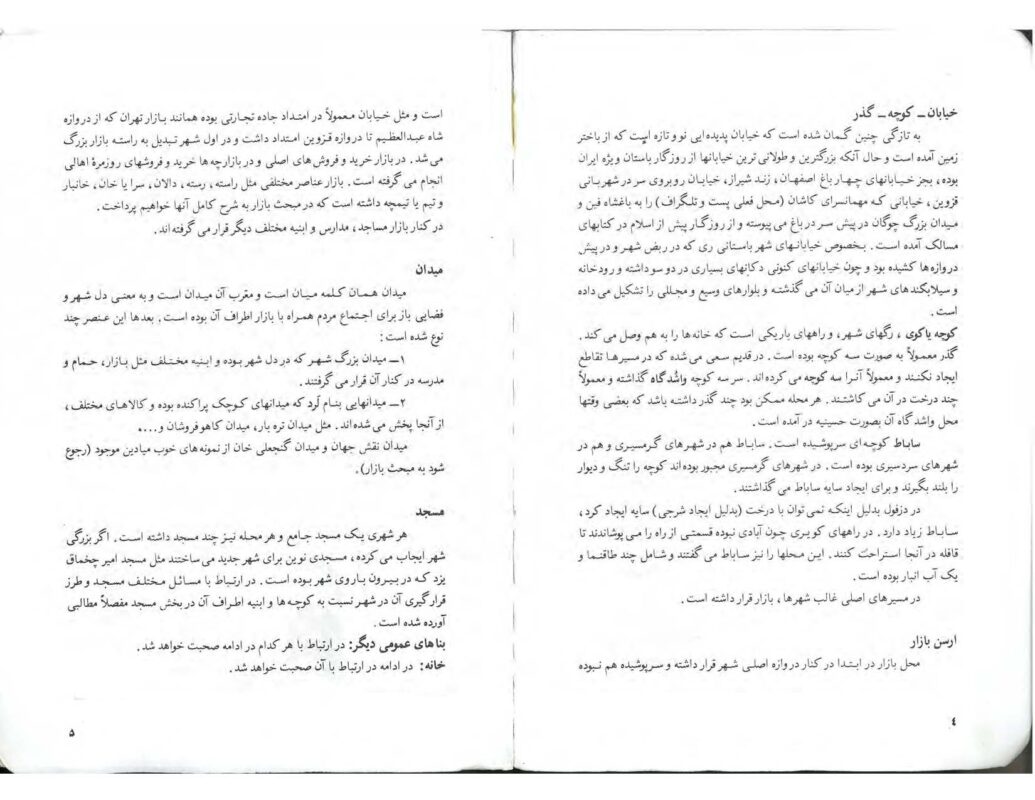 خیابان ـ کوچه ـ گذر
به تازگی چنین گمان شده است که خیابان پدیده‌ایی نو و تازه است که از باختر
زمین آمده است و حال آنکه بزرگترین و طولانی ترین خیابانها از روزگار باستان ویژه ایران
بوده، بجز خیابانهای چهارباغ اصفهان، زند شیراز، خیابان روبروی سردر شهربانی
قزوین، خیابانی که مهمانسرای کاشان (محل فعلی پست و تلگراف) را به باغشاه فین و
میدان بزرگ چوگان در پیش سردر باغ می پیوسته و از روزگار پیش از اسلام در کتابهای
مسالک آمده است. بخصوص خیابانهای شهر باستانی ری که در ربض شهر و در پیش
دروازه‌ها کشیده بود و چون خیابانهای کنونی دکانهای بسیاری در دو سو داشته و رودخانه
و سیلابکندهای شهر از میان آن می گذشته و بلوارهای وسیع و مجللی را تشکیل می داده
است.
کوچه یا کوی، رگهای شهر، و راههای باریکی است که خانه‌ها را به هم وصل می کند.
گذر معمولاً به صورت سه کوچه بوده است. در قدیم سعی می شده که در مسیرها تقاطع
ایجاد نکنند و معمولاً آنرا سه کوچه می کرده اند. سر سه کوچه واشدگاه گذاشته و معمولاً
چند درخت در آن می کاشتند. هر محله ممکن بود چند گذر داشته باشد که بعضی وقتها
محل واشدگاه آن بصورت حسینیه در آمده است.
ساباط کوچه‌ای سرپوشیده است. ساباط هم در شهرهای گرمسیری و هم در
شهرهای سردسیری بوده است. در شهرهای گرمسیری مجبور بوده اند کوچه را تنگ و دیوار
را بلند بگیرند و برای ایجاد سایه ساباط می گذاشتند.
در دزفول بدلیل اینکه نمی توان با درخت (بدلیل ایجاد شرجی) سایه ایجاد کرد،
ساباط زیاد دارد. در راههای کویری چون آبادی نبوده قسمتی از راه را می پوشاندند تا
قافله در آنجا استراحت کنند. این محلها را نیز ساباط می گفتند و شامل چند طاقنما و
یک آب انبار بوده است.
در مسیرهای اصلی غالب شهرها، بازار قرار داشته است.
ارسن بازار
محل بازار در ابتدا در کنار دروازه اصلی شهر قرار داشته و سرپوشیده هم نبوده
٤
است و مثل خیابان معمولاً در امتداد جاده تجارتی بوده همانند بازار تهران که از دروازه
شاه عبدالعظیم تا دروازه قزوین امتداد داشت و در اول شهر تبدیل به راسته بازار بزرگ
می شد. در بازار خرید و فروش های اصلی و در بازارچه‌ها خرید و فروشهای روزمرهٔ اهالی
انجام می گرفته است. بازار عناصر مختلفی مثل راسته، رسته، دالان، سرا یا خان، خانبار
و تیم یا تیمچه داشته است که در مبحث بازار به شرح کامل آنها خواهیم پرداخت.
در کنار بازار مساجد، مدارس و ابنیه مختلف دیگر قرار می گرفته اند.
میدان
میدان همان کلمه میان است و مقرب آن میدان است و به معنی دل شهر و
فضایی باز برای اجتماع مردم همراه با بازار اطراف آن بوده است. بعدها این عنصر چند
نوع شده است:
١ـ میدان بزرگ شهر که در دل شهر بوده و ابنیه مختلف مثل بازار، حمام و
مدرسه در کنار آن قرار می گرفتند.
٢ـ میدانهایی بنام لَرد که میدانهای کوچک پراکنده بوده و کالاهای مختلف،
از آنجا پخش می شده اند. مثل میدان تره بار، میدان کاهوفروشان و...
میدان نقش جهان و میدان گنجعلی خان از نمونه‌های خوب میادین موجود (رجوع
شود به مبحث بازار).
مسجد
هر شهری یک مسجد جامع و هر محله نیز چند مسجد داشته است. اگر بزرگی
شهر ایجاب می کرده، مسجدی نوین برای شهر جدید می ساختند مثل مسجد امیر چخماق
یزد که در بیرون باروی شهر بوده است. در ارتباط با مسائل مختلف مسجد و طرز
قرارگیری آن در شهر نسبت به کوچه‌ها و ابنیه اطراف آن در بخش مسجد مفصلاً مطالبی
آورده شده است.
بناهای عمومی دیگر: در ارتباط با هر کدام در ادامه صحبت خواهد شد.
خانه: در ادامه در ارتباط با آن صحبت خواهد شد.
۵